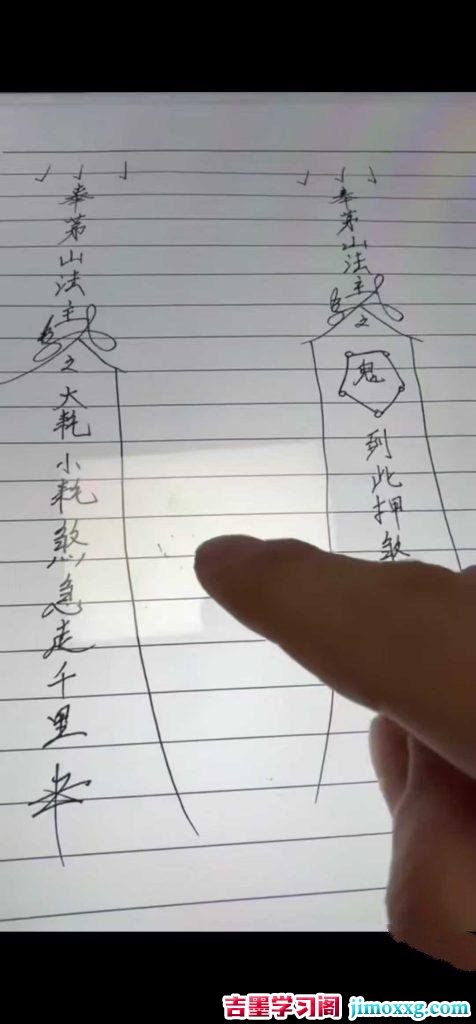 奉茅山法主
之
大耗小耗煞急走千里
奉茅山法主
之
鬼
到此押煞
吉墨学习阁 jimoxxg.com